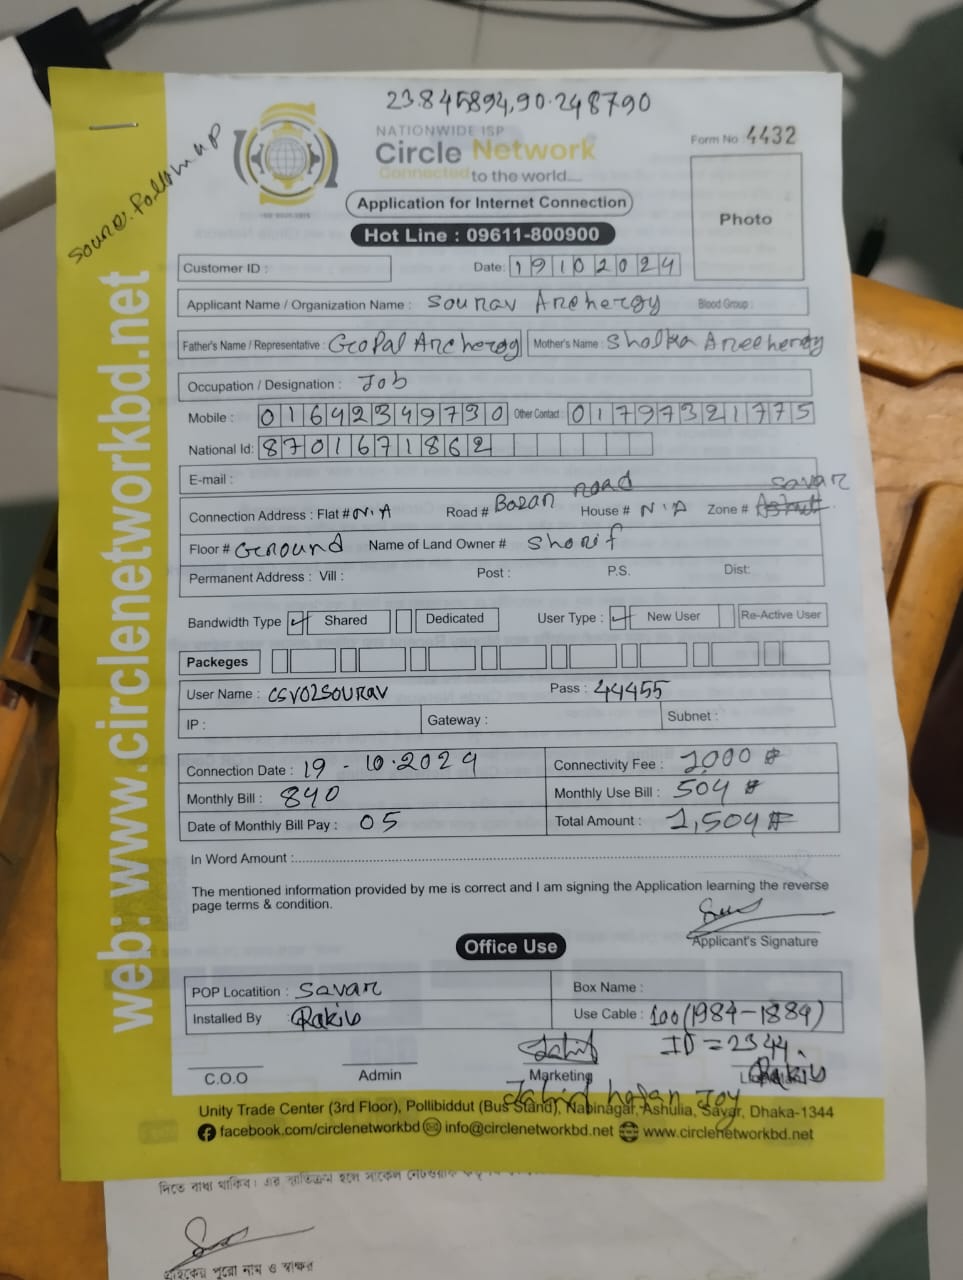 23.845894,90.248790
NATIONWIDE ISP
Circle Network
Connected to the world....
Form No : 4432
Application for Internet Connection
Photo
Hot Line : 09611-800900
Customer ID :
Date: 19102024
Applicant Name / Organization Name : Sourav Archergy Blood Group :
Father's Name / Representative : Gropal Archergy Mother's Name :
Occupation / Designation : Job
Mobile : 01642349730 Other Contact : 01797321775
National Id: 8701671862
E-mail :
Connection Address : Flat # N.A Road # Bazar road House # N.A Zone # Savar
Floor # Ground Name of Land Owner # Shorif
Permanent Address : Vill : Post : P.S. Dist:
Bandwidth Type Shared Dedicated User Type : New User Re-Active User
Packeges
User Name : CSV02SOURAV Pass : 44455
IP : Gateway : Subnet :
Connection Date : 19 - 10.2024 Connectivity Fee : 1000
Monthly Bill : 840 Monthly Use Bill : 504
Date of Monthly Bill Pay : 05 Total Amount : 1,504
In Word Amount :
The mentioned information provided by me is correct and I am signing the Application learning the reverse
page terms & condition.
Applicant's Signature
Office Use
POP Locatition : Savar Box Name :
Installed By Rakib Use Cable : 100(1984-1884)
ID = 2344
C.O.O Admin Marketing Rakib
Unity Trade Center (3rd Floor), Pollibiddut (Bus Stand), Nabinagar, Ashulia, Savar, Dhaka-1344
facebook.com/circlenetworkbd info@circlenetworkbd.net www.circlenetworkbd.net
web: www.circlenetworkbd.net
গ্রাহকের পুরো নাম ও স্বাক্ষর